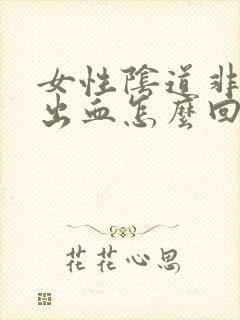 女性陰道非
出血怎麼回
花花心思